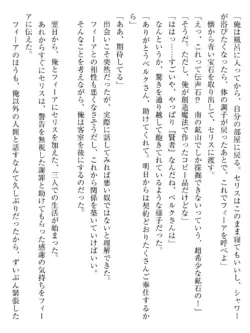 「俺は風呂に入ってから、自分の部屋に戻る。セリスはこのまま寝てもいいし、シャワーを浴びてもいい。体の調子が戻ったら、これでフィーアを呼べよ」
懐から青い宝石を取り出して、セリスに渡す。
「うそ、これって伝声石!?　あの南の鉱山でしか採掘できないっていう、超希少な鉱石の!」
「そうだ。ただし、俺が創造魔法で作ったコピー品だけどな」
「はは……すごいや、やっぱり『賢者』なんだね、ベルクさんは」
なんというか、驚きを通り越して飽きれているような様子だった。
「ありがとうベルクさん、助けてくれて。明日からは契約どおりたくさんご奉仕するから」
「ああ、期待してる」
出会いこそ突然だったが、実際に話してみれば悪い奴ではないと理解できた。
フィーアとの相性も悪くなさそうだし、これから関係を築いていけばいい。
そう考えながら、俺は客室を後にするのだった。

翌日から、フィーアにセリスを加えた、三人での生活が始まった。
あれからすぐにセリスは、警告を無視した謝罪と助けてもらった感謝の気持ちをフィーアに伝えた。
フィーアのほうは、俺以外の人間と話すなんて久しぶりだったから、ずいぶん緊張した